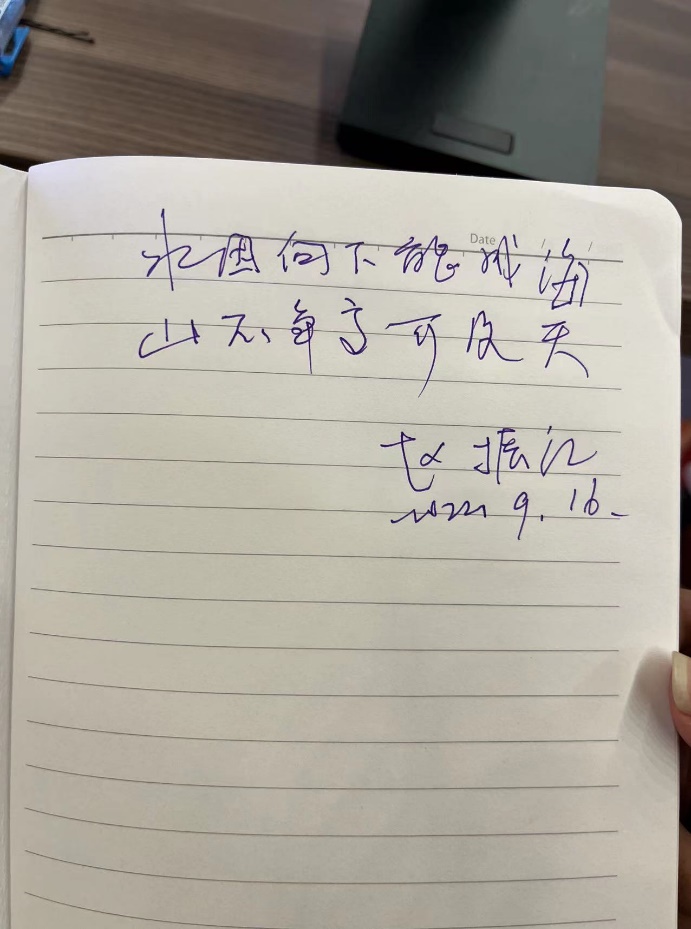 Date / /
水因向下能成海
山不争高可及天
赵振江
2022.9.16.